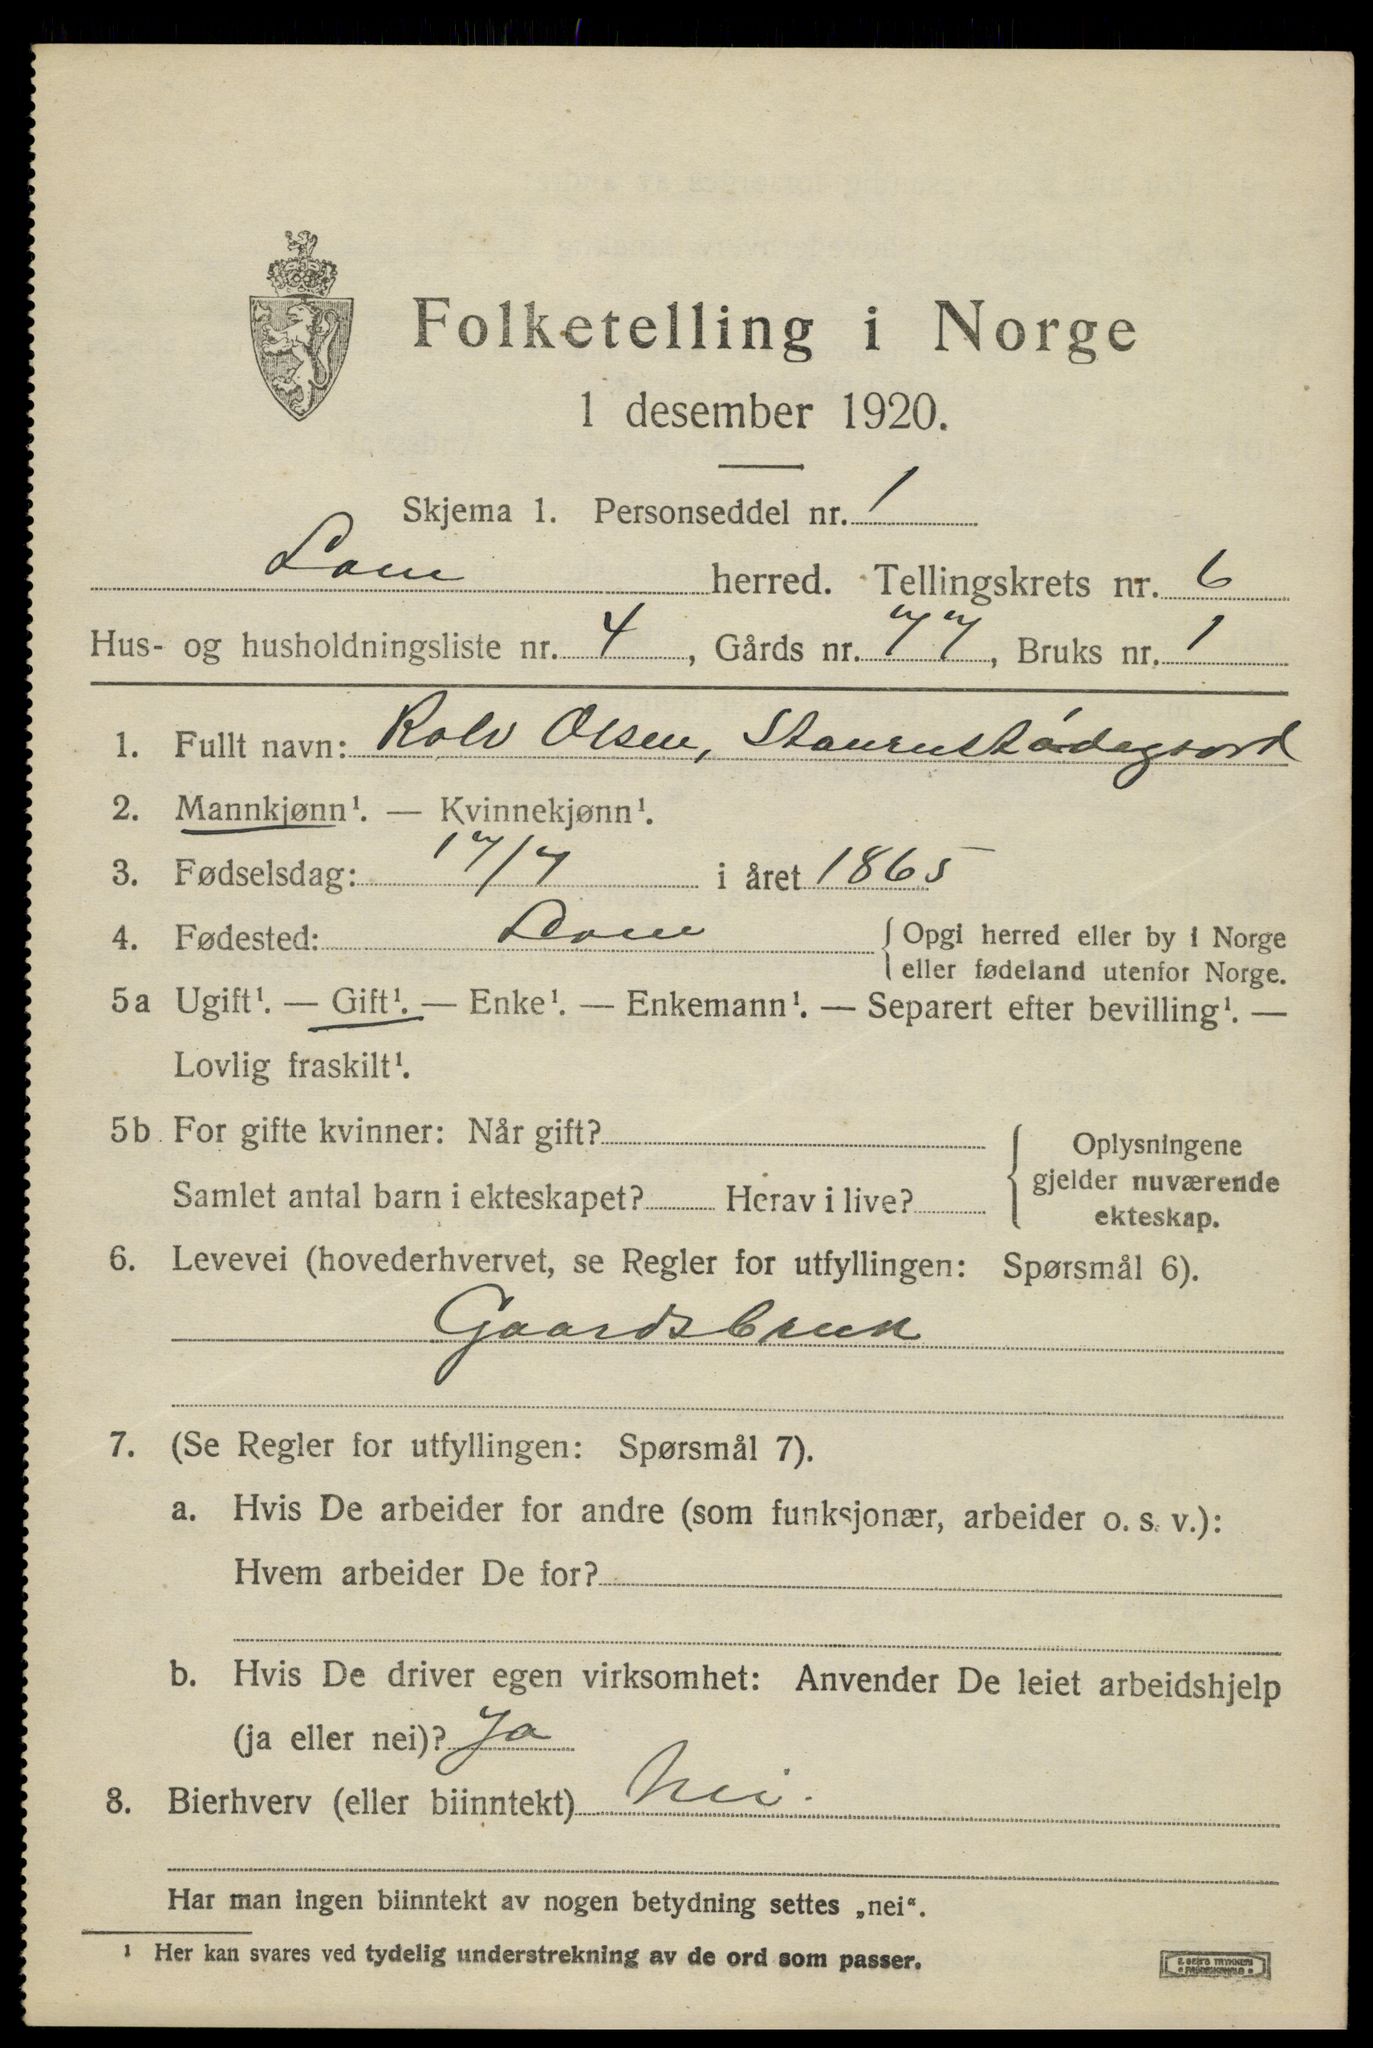 Folketelling i Norge
1 desember 1920.
Skjema 1. Personseddel nr. 1
Lom herred. Tellingskrets nr. 6
Hus- og husholdningsliste nr. 4, Gårds nr. 77, Bruks nr. 1
1. Fullt navn: Rolv Olsen,
2. Mannkjønn¹. — Kvinnekjønn¹.
3. Fødselsdag: 17/7 i året 1865
4. Fødested: Lom { Opgi herred eller by i Norge
eller fødeland utenfor Norge.
5a Ugift¹. — Gift¹. — Enke¹. — Enkemann¹. — Separert efter bevilling¹. —
Lovlig fraskilt¹.
5b For gifte kvinner: Når gift? { Oplysningene
gjelder nuværende
Samlet antal barn i ekteskapet? Herav i live?
ekteskap.
6. Levevei (hovederhvervet, se Regler for utfyllingen: Spørsmål 6).
Gaardsbruk
7. (Se Regler for utfyllingen: Spørsmål 7).
a. Hvis De arbeider for andre (som funksjonær, arbeider o. s. v.):
Hvem arbeider De for?
b. Hvis De driver egen virksomhet: Anvender De leiet arbeidshjelp
(ja eller nei)? Ja
8. Bierhverv (eller biinntekt) Nei.
Har man ingen biinntekt av nogen betydning settes „nei“.
¹ Her kan svares ved tydelig understrekning av de ord som passer.